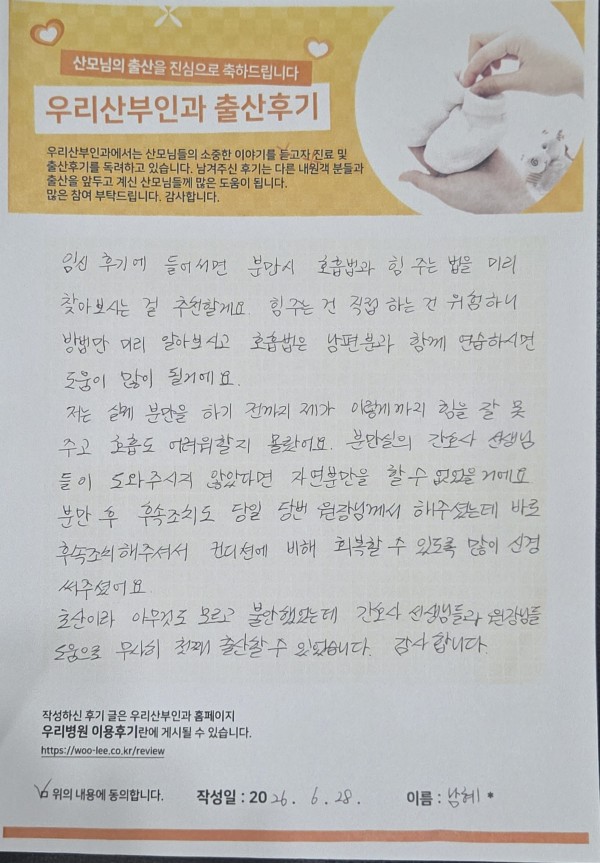 산모님의 출산을 진심으로 축하드립니다
우리산부인과 출산후기
우리산부인과에서는 산모님들의 소중한 이야기를 듣고자 진료 및
출산후기를 독려하고 있습니다. 남겨주신 후기는 다른 내원객 분들과
출산을 앞두고 계신 산모님들께 많은 도움이 됩니다.
많은 참여 부탁드립니다. 감사합니다.
임신 후기에 들어서면 분만시 호흡법과 힘 주는 법을 미리
찾아보시는 걸 추천할게요. 힘주는 건 직접 하는 건 위험하니
방법만 미리 알아보시고 호흡법은 남편분과 함께 연습하시면
도움이 많이 될거에요.
저는 실제 분만을 하기 전까지 제가 이렇게까지 힘을 잘 못
주고 호흡도 어려워할지 몰랐어요. 분만실의 간호사 선생님
들이 도와주시지 않았다면 자연분만을 할 수 없었을 거에요
분만 후 후속조치도 당일 당번 원장님께서 해주셨는데 바로
후속조치해주셔서 컨디션에 비해 회복할 수 있도록 많이 신경
써주셨어요.
초산이라 아무것도 모르고 불안했었는데 간호사 선생님들과 원장님들
도움으로 무사히 첫째 출산할 수 있었습니다. 감사합니다.
작성하신 후기 글은 우리산부인과 홈페이지
우리병원 이용후기란에 게시될 수 있습니다.
https://woo-lee.co.kr/review
위의 내용에 동의합니다. 작성일 : 2026. 6. 28. 이름 : 남혜 *